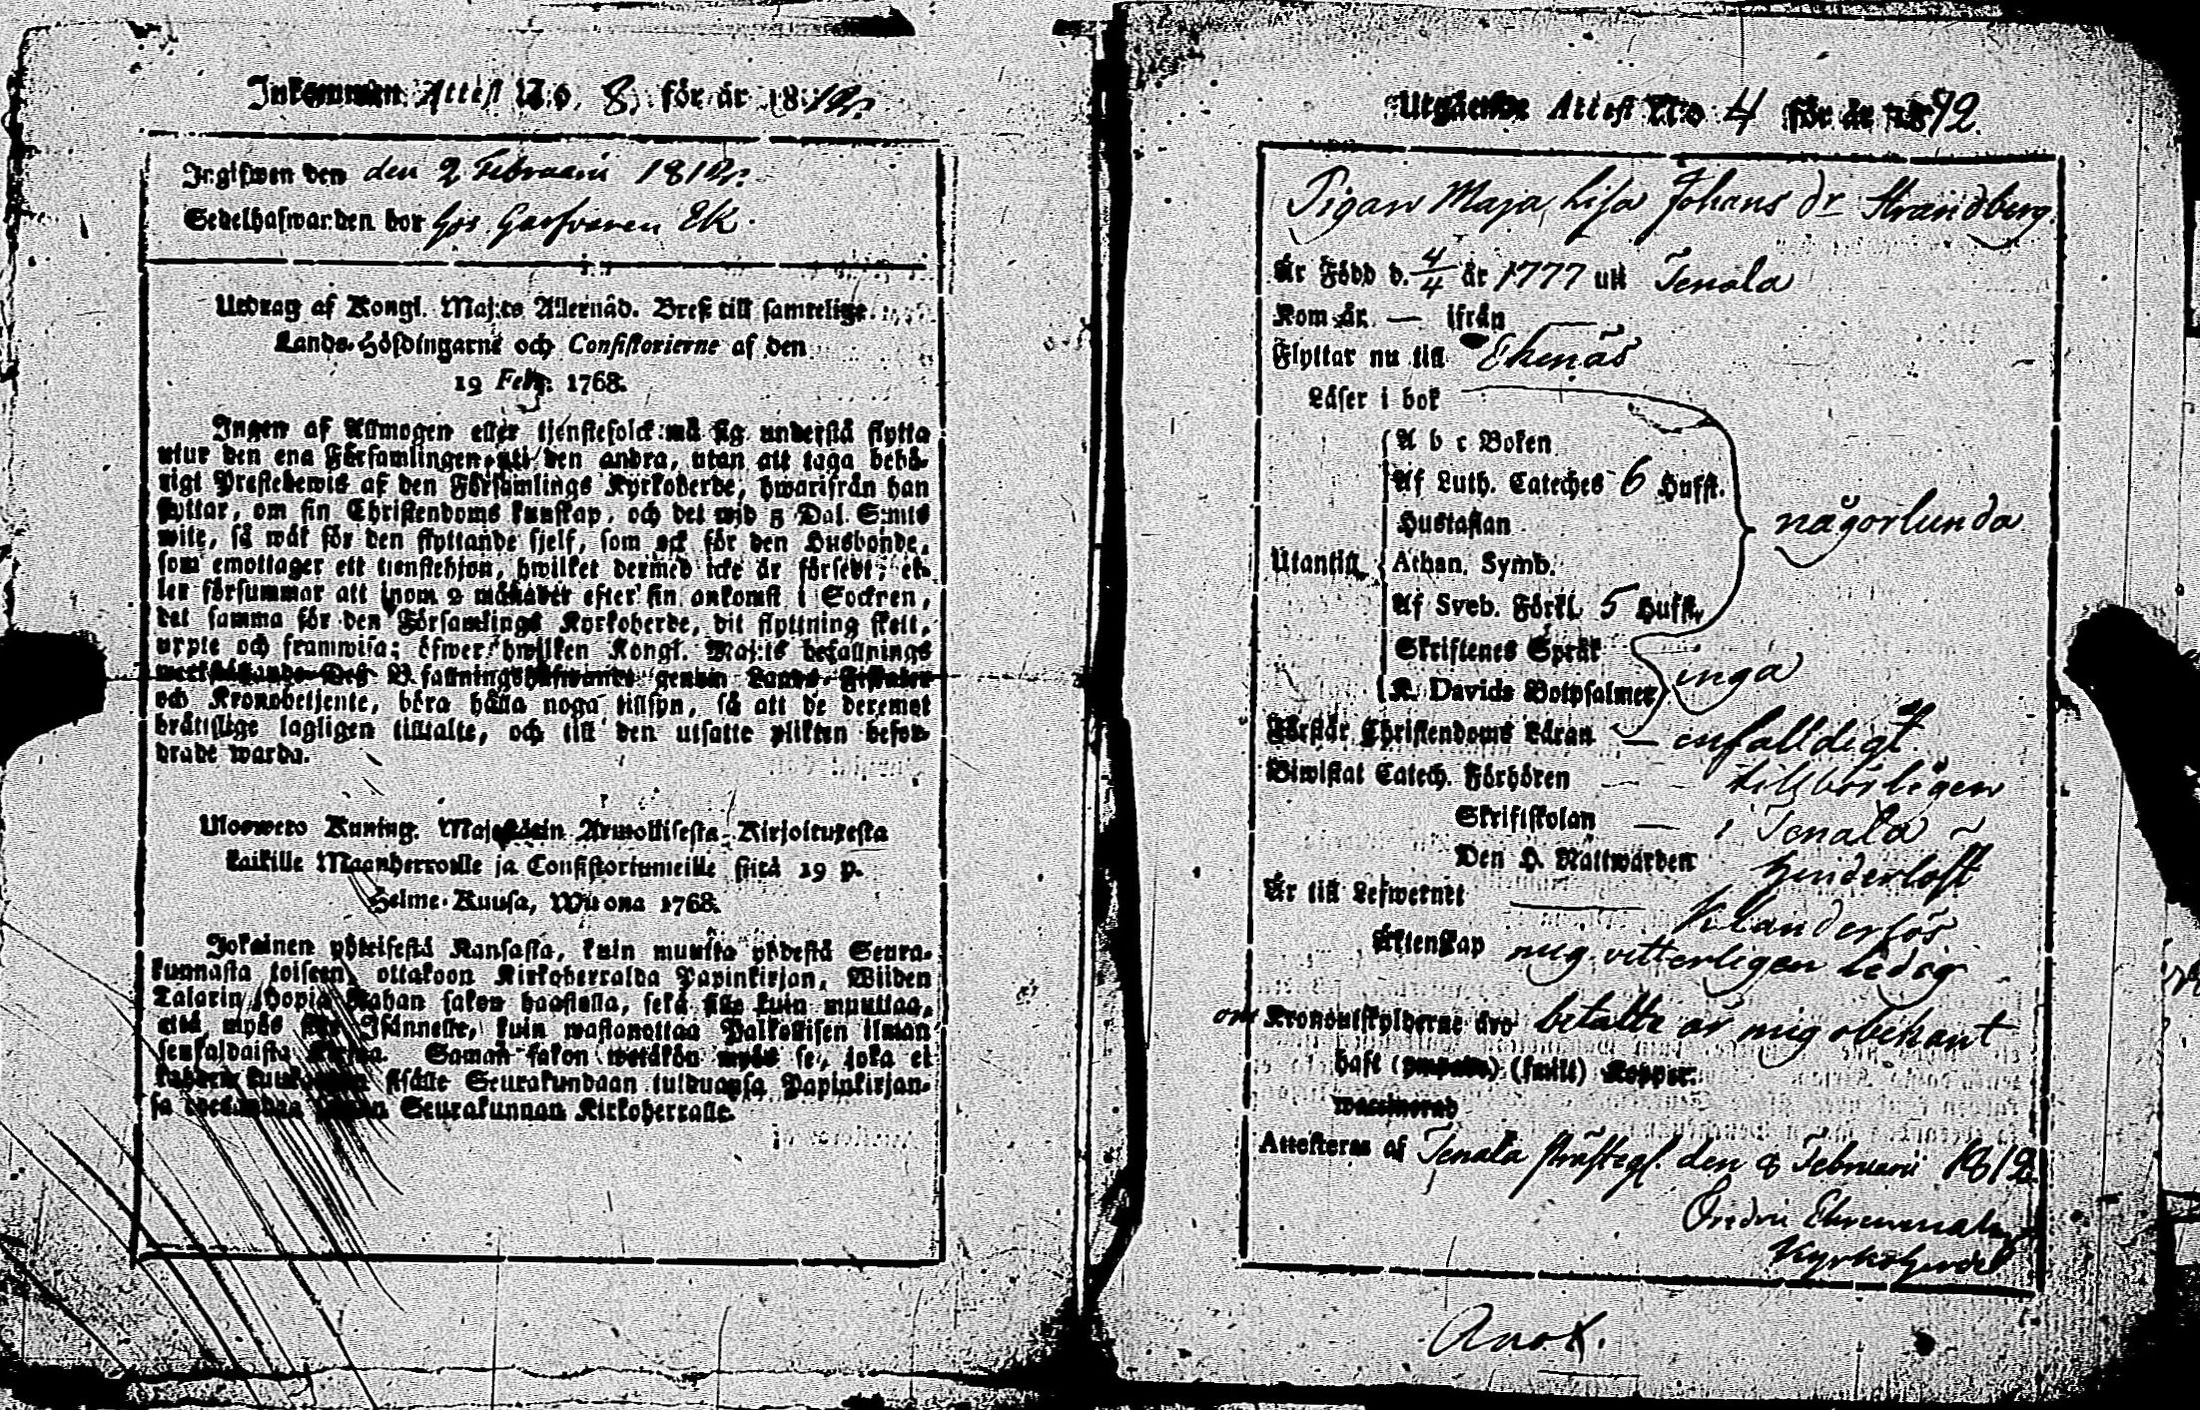 Inkommen Attest N:o 8. för år 1812.
Ingifwen den den 2 Februarii 1812.
Sedelhafwarden bor hjs Garfvaren Ek.
Utdrag af Kongl. Maj:ts Allernåd. Bref till samtelige
Lands-Höfdingarne och Consistorierne af den
19 Febr. 1768.
Ingen af Allmogen eller tjenstefolck må sig understå flytta
utur den ena Församlingen uti den andra, utan att taga behö-
rigt Prestebewis af den Församlings Kyrkoherde, hwarifrån han
flyttar, om sin Christendoms kunskap, och det wid 5 Dal. S:mts
wite, så wäl för den flyttande sjelf, som ock för den Husbonde,
som emottager ett tienstehjon, hwilket dermed icke är försedt; el-
ler försummar att inom 2 månader efter sin ankomst i Socknen,
det samma för den Församlings Kyrkoherde, dit flyttning skett,
uppte och framwisa; öfwer hwilken Kongl. Maj:ts befallnings
werkställande Des B fallningshafwande genom Lands-Fiskaler
och Kronobetjente, böra hålla noga tillsyn, så att de deremot
bråttslige lagligen tilltalte, och till den utsatte plikten befor-
drade warda.
Ulosweto Kuning. Majestätin Armollisesta Kirjoituxesta
kaikille Maanherroille ja Consistoriumeille siitä 19 p.
Helme-Kuusa, Wuonna 1768.
Jokainen yhteisestä Kansasta, kuin muutta yhdestä Seura-
kunnasta toiseen, ottakoon Kirkoherralda Papinkirjan, Wiiden
Talarin Hopia Rahan sakon haastolla, sekä sille kuin muuttaa,
että myös sille Isännelle, kuin wastanottaa Palkollisen ilman
senkaldaista Kirjaa. Saman sakon wetäkön myös se, joka ei
kahden kuukauden sisälle Seurakundaan tulduansa Papinkirjan-
sa Seurakunnan Kirkoherralle.
Utgående Attest N:o 4 för år 1812
Pigan Maja Lisa Johans dr Strandberg
Är Född d. 4/4 år 1777 uti Tenala
Kom år — ifrån —
Flyttar nu till Ekenäs
Läser i bok
A b c Boken
Af Luth. Cateches 6 Hufst.
Hustaflan
någorlunda
Utantill
Athan. Symb.
Af Sveb. Förkl. 5 Hufst.
Skriftenes Språk
K. Davids Botpsalmer
inga
Förstår Christendoms Läran — enfalldigt
Biwistat Catech. Förhören — tillbörligen
Skriftskolan — i Tenala
Den H. Nattwarden hinderlöst
Är till Lefwernet — klanderlös
Äktenskap mig vitterligen ledig
om Kronoutskylderne äro betalte är mig obekant
haft () (smitt) Koppor.
waccinerad
Attesteras af Tenala Prästegl. den 8 Februarii 1812
Kyrkoherde